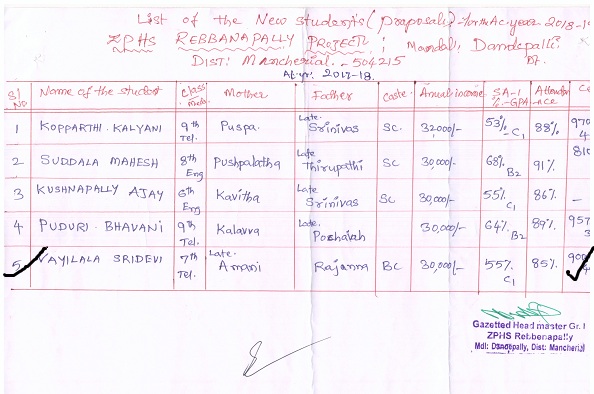 List of the New students (Proposals) for the Ac. year 2018-19
ZPHS REBBANAPALLY PROJECT; Mandal: Dandepalli.
DIST: Mancherial. - 504215
Ac.yr. 2017-18.
Sl No Name of the student Class Med. Mother Father Caste Annual income SA-1 %-GPA Attendance Ce
1 KOPPARTHI KALYANI 9th Tel. Puspa. Late. Srinivas SC. 32000/- 53% C1 88% 970
2 SUDDALA MAHESH 8th Eng Pushpalatha Late Thirupathi SC 30,000/- 68% B2 91% 810
3 KUSHNAPALLY AJAY 6th Eng Kavitha Late Srinivas SC 30,000/- 55% C1 86% -
4 PUDURI BHAVANI 9th Tel. Kalavva Late. Poshavah 30,000/- 64% B2 89% 957
5 VAYILALA SRIDEVI 7th Tel. Late. Amani Rajanna BC 30,000/- 55% C1 85% 900
Gazetted Head master Gr. I
ZPHS Rebbenapally
Mdl: Dandepally, Dist: Mancherial